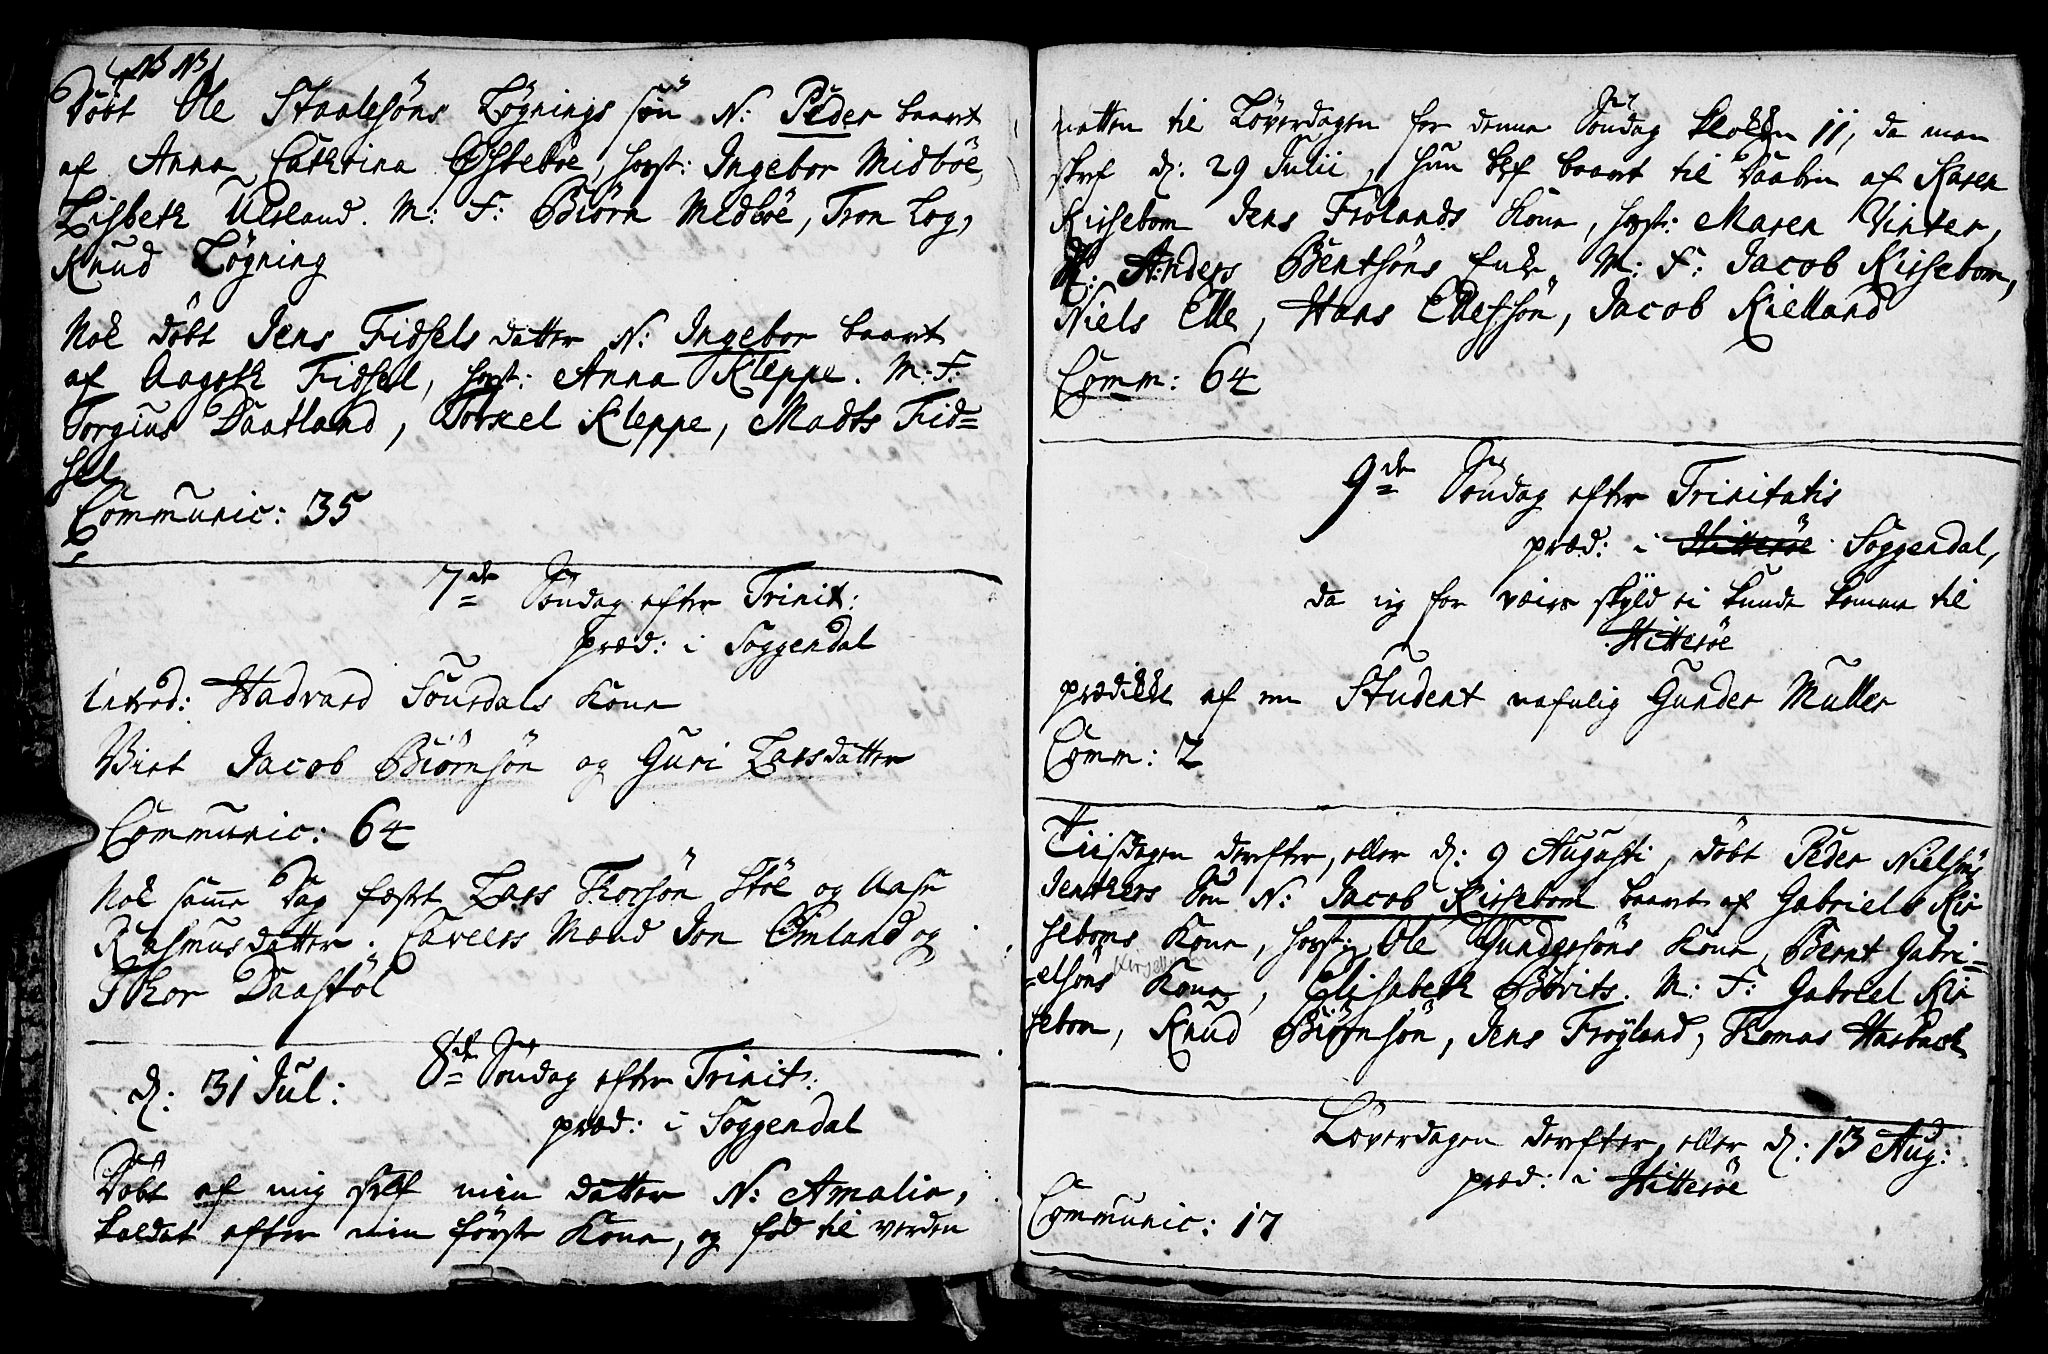 NB NB
Døbt Ole Staalesøns Løgnings søn N: Peder baaret
af Anna Cathrina Østebøe, host: Ingebor Midbøe,
Lisbeth Ulsland. M: F: Biørn Medbøe, Tron Log,
Knud Løgning
Nok døbt Jens Fidsels datter N: Ingebor baaret
af Aagoth Fidsel, host: Anna Kleppe. M: F:
Torgius Daatland, Torkel Kleppe, Madts Fid=
sel
Communic: 35
7de Søndag efter Trinit:
præd: i Soggendal
Introd: Hadvard Søurdals Kone
Viet Jacob Biørnsøn og Guri Larsdatter
Communic: 64
Nok samme Dag fæstet Lars Thorsøn Støl og Aase
Rasmusdatter. Caveers Mænd Jon Omland og
Thor Daastøl
d: 31 Jul: 8de Søndag efter Trinit:
præd: i Soggendal
Døbt af mig self min datter N: Amalia,
kaldet efter min første Kone, og fød til verden
natten til Løverdagen for denne Søndag Klokken 11, da man
skref d: 29 Julii, hun blef baaret til Daaben af Karen
Kirsebom Jens Frølands Kone, host: Maren Vinter,
Anders Bentsøns Enke. M: F: Jacob Kirsebom,
Niels Elle, Hans Ellefsøn, Jacob Kielland
Comm: 64
9de Søndag efter Trinitatis
præd: i Hitterøe Soggendal,
da jeg for veirs skyld ei kunde komme til
Hitterøe
prædiket af en Student nafnlig Gunder Muller
Comm: 2
Tiisdagen derefter, eller d: 9 Augusti, døbt Peder Nielsøns
Jenthers Søn N: Jacob Kirsebom baaret af Gabriels Kir
seboms Kone, host: Ole Gundersøns Kone, Bernt Gabri=
=elsøns Kone, Elisabeth Børits. M: F: Gabriel Kir
sebom, Knud Biørnsøn, Jens Frøyland, Thomas Hasbach
Løverdagen derefter, eller d: 13 Aug:
præd: i Hitterøe
Communic: 17